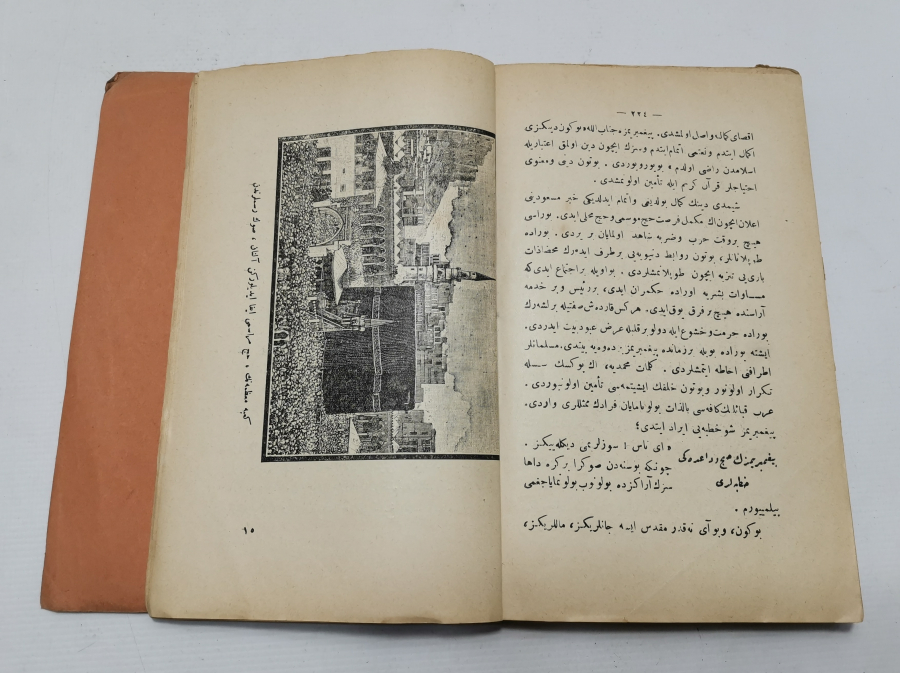 — ٢٢٤ —
اقصای كماله واصل اولمشدی. پیغمبریمزه جناب الله «بوكون دینكزی
اكمال ایتدم و نعمتمی اتمام ایتدم و سزك ایچون دین اولمق اعتباریله
اسلامدن راضی اولدم» بویوریوردی. بوتون دینی و معنوی
احتیاجلر قرآن كریم ایله تأمین اولونمشدی.
شیمدی دینك كمال بولدیغی و اتمام ایدلدیكی خبر مسعودینی
اعلان ایچون اك مكمل فرصت حج موسمی و حج محلی ایدی. بوراسی
هیچ بر وقت حرب و ضربه شاهد اولمایان بر یردی. بوراده
طوپلانانلر، بوتون روابط دنیویه‌یی برطرف ایدەرك محضا ذات
باری‌یی تنزیه ایچون طوپلانمشلردی. بو اویله بر اجتماع ایدی كه
مساوات بشریه اوراده حكمران ایدی، بر رئیس و بر خدمه
آراسنده هیچ بر فرق یوق ایدی. هركس قارده‌ش صفتیله برلشەرك
بوراده حرمت و خشوع ایله دولو بر قلبله عرض عبودیت ایدردی.
ایشته بوراده بویله بر زمانده پیغمبریمز ده‌وه‌یه بیندی. مسلمانلر
اطرافنی احاطه ایتمشلردی. كلمات محمدیه، اك یوكسك سسله
تكرار اولونور و بوتون خلقك ایشیتمه‌سی تأمین اولونیوردی.
عرب قبائلنك كافه‌سی بالذات بولونامایان افرادك ممثللری واردی.
پیغمبریمز شو خطبه‌یی ایراد ایتدی؛
پیغمبریمزك حجة وداعده‌كی
خطابه‌لری
«ای ناس! سوزلریمی دیكله‌ییكز.
چونكه بو سنه‌دن صوكرا بر كره داها
سزك آراكزده بولونوب بولونمایاجغمی
بیلمییورم.
بوكون، و بو آی نه‌قدر مقدس ایسه جانلریكز، ماللریكز،
كعبهٔ معظمه‌نك، حج مراسمی ایفا ایدیلیركن آلنان، صوك رسملرندن
١٥